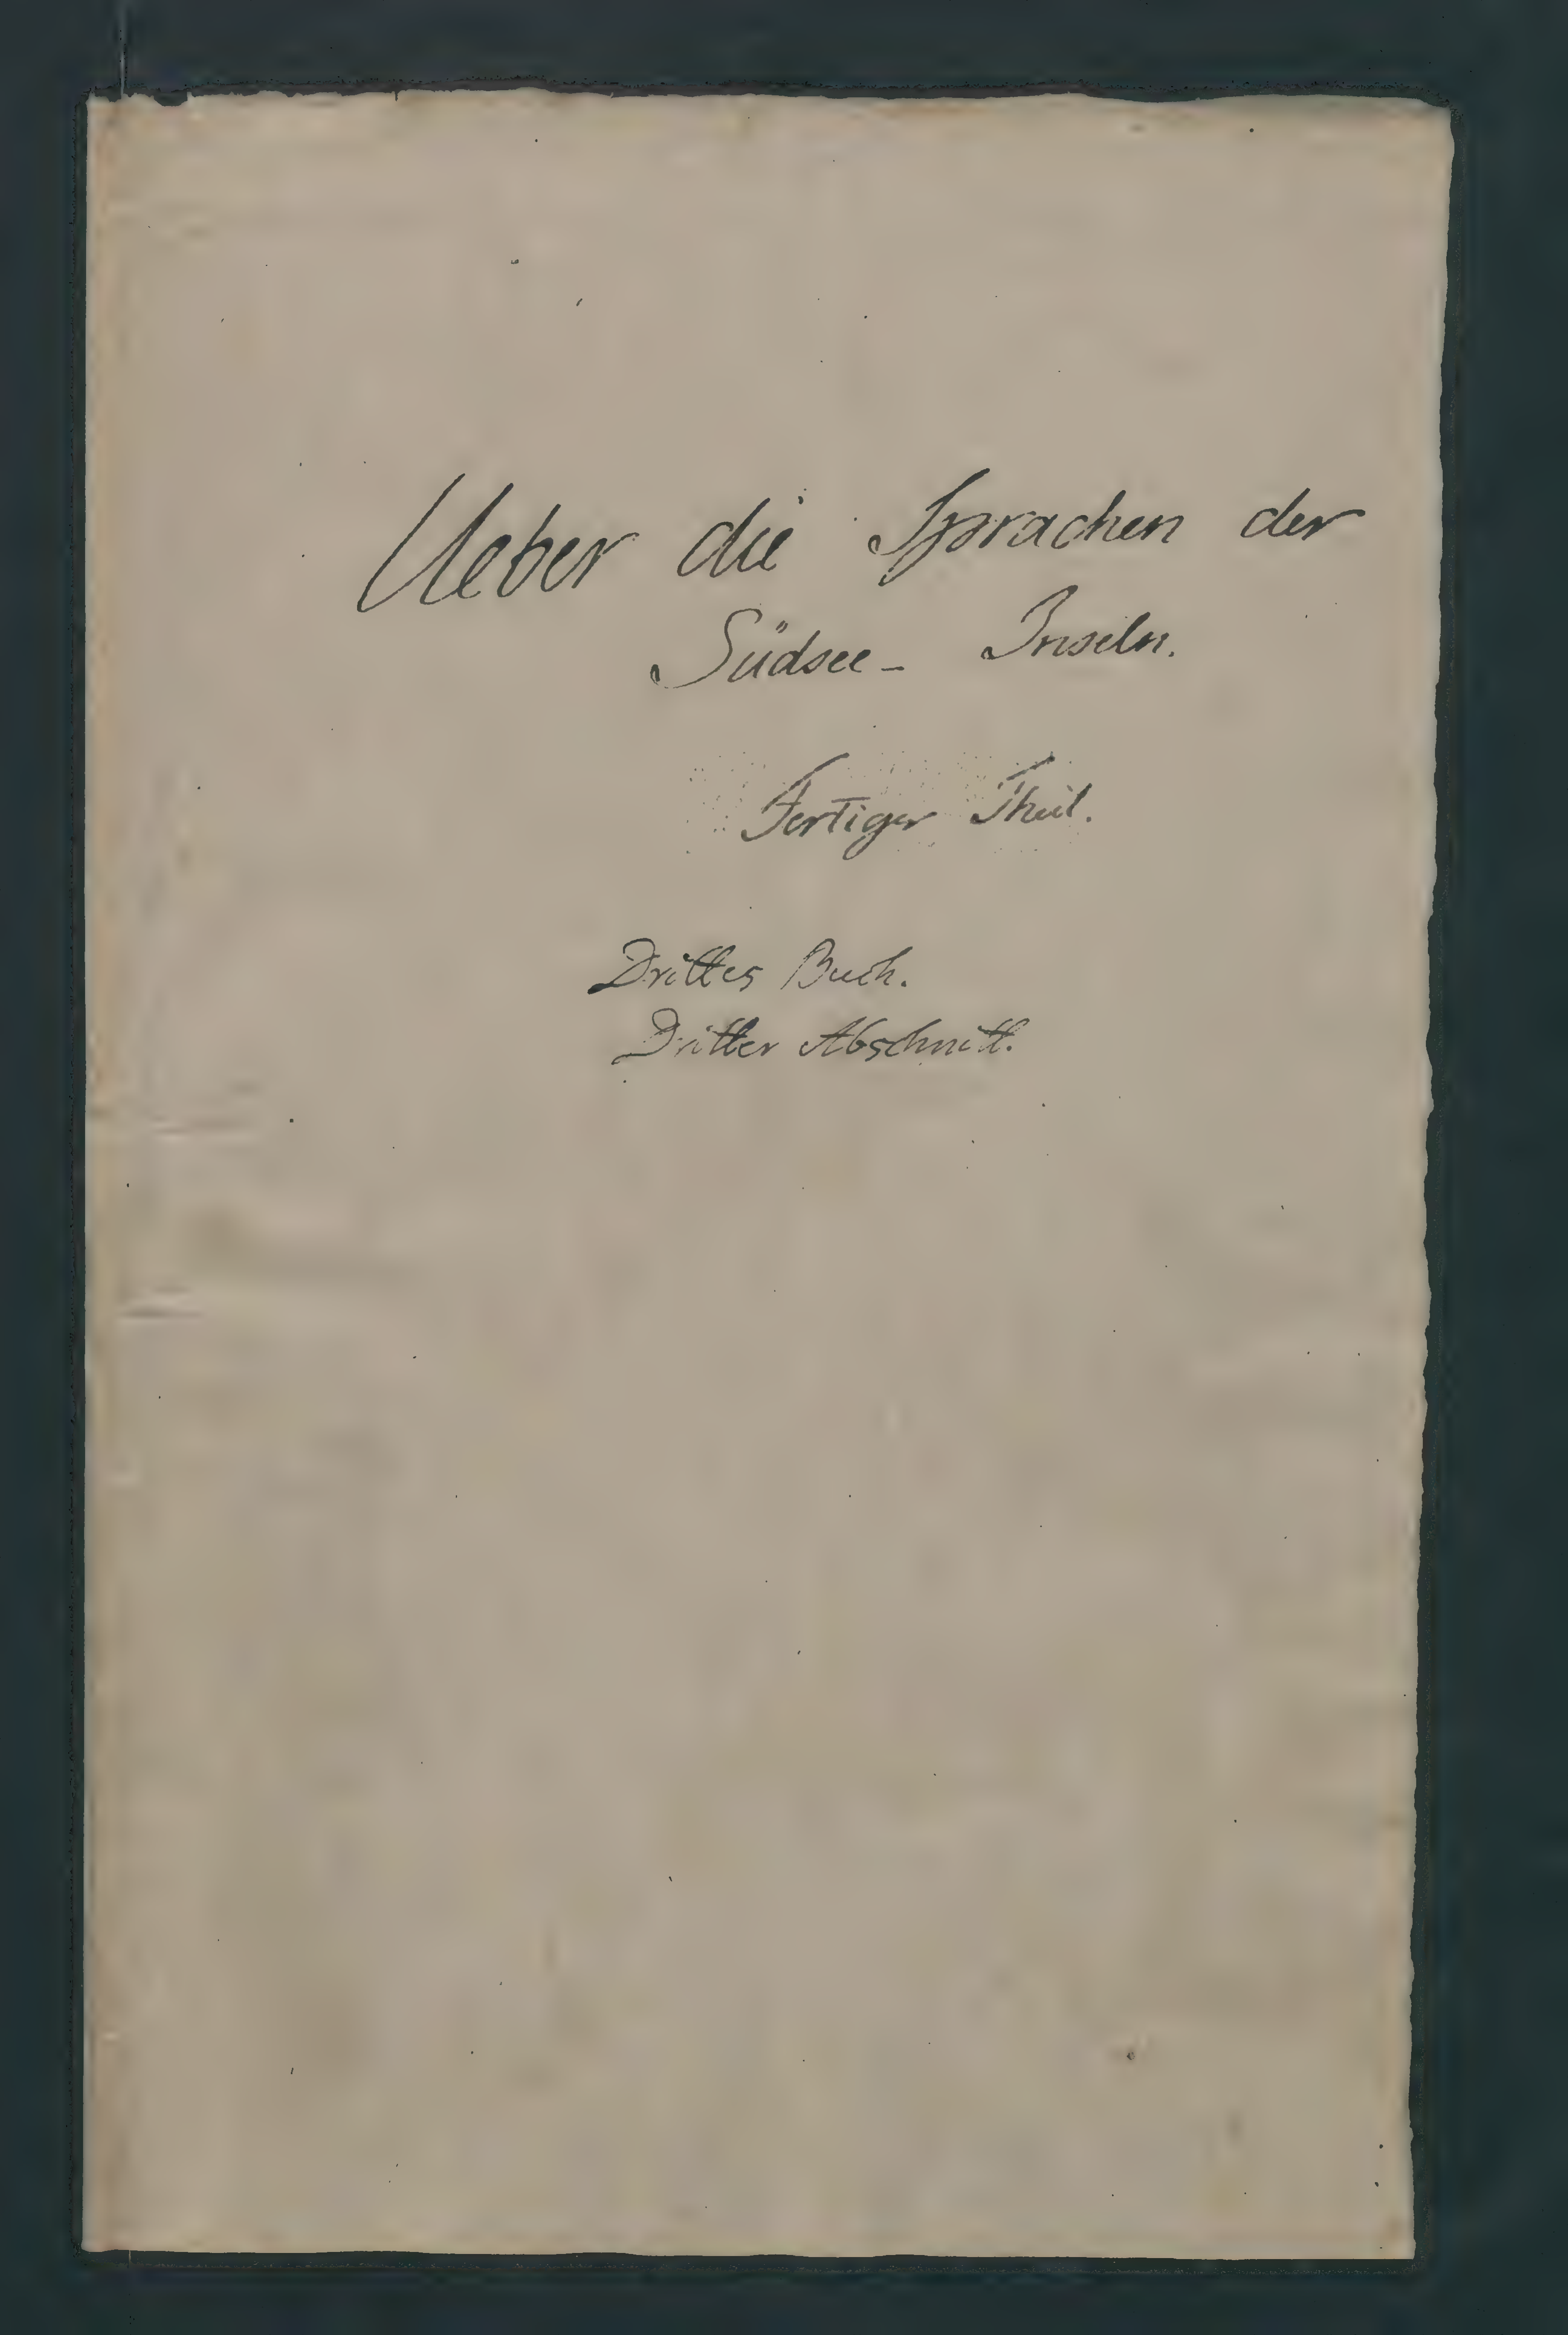 Ueber die Sprachen der
Südsee- Inseln.
Fertiger Theil.
Drittes Buch.
Dritter Abschnitt.